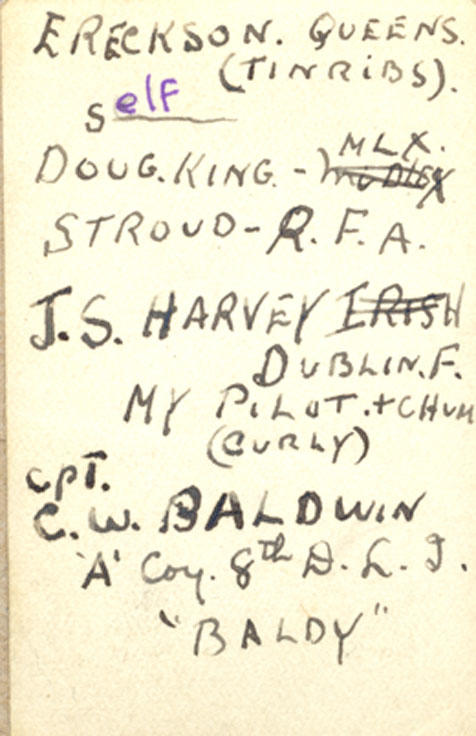 ERECKSON. QUEENS.
(TINRIBS).
Self
MLX.
DOUG. KING. -
STROUD - R. F. A.
J. S. HARVEY IRISH
DUBLIN. F.
MY PILOT. + CHUM
(CURLY)
CPT.
C. W. BALDWIN
'A' Coy. 8th D. L. I.
"BALDY"